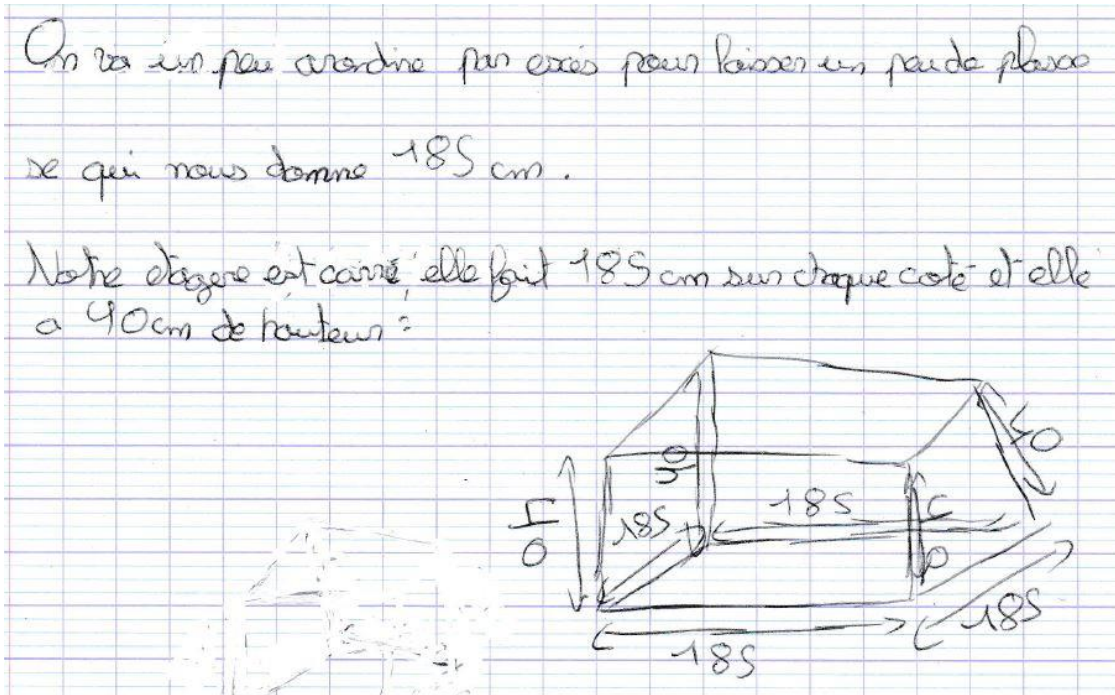 On va un peu arondire par excés pour laisser un peu de plasse
se qui nous donne 185 cm.
Notre étagere est carré, elle fait 185 cm sur chaque coté et elle
a 40cm de hauteur :
40
40
40
40
185
185
185
185